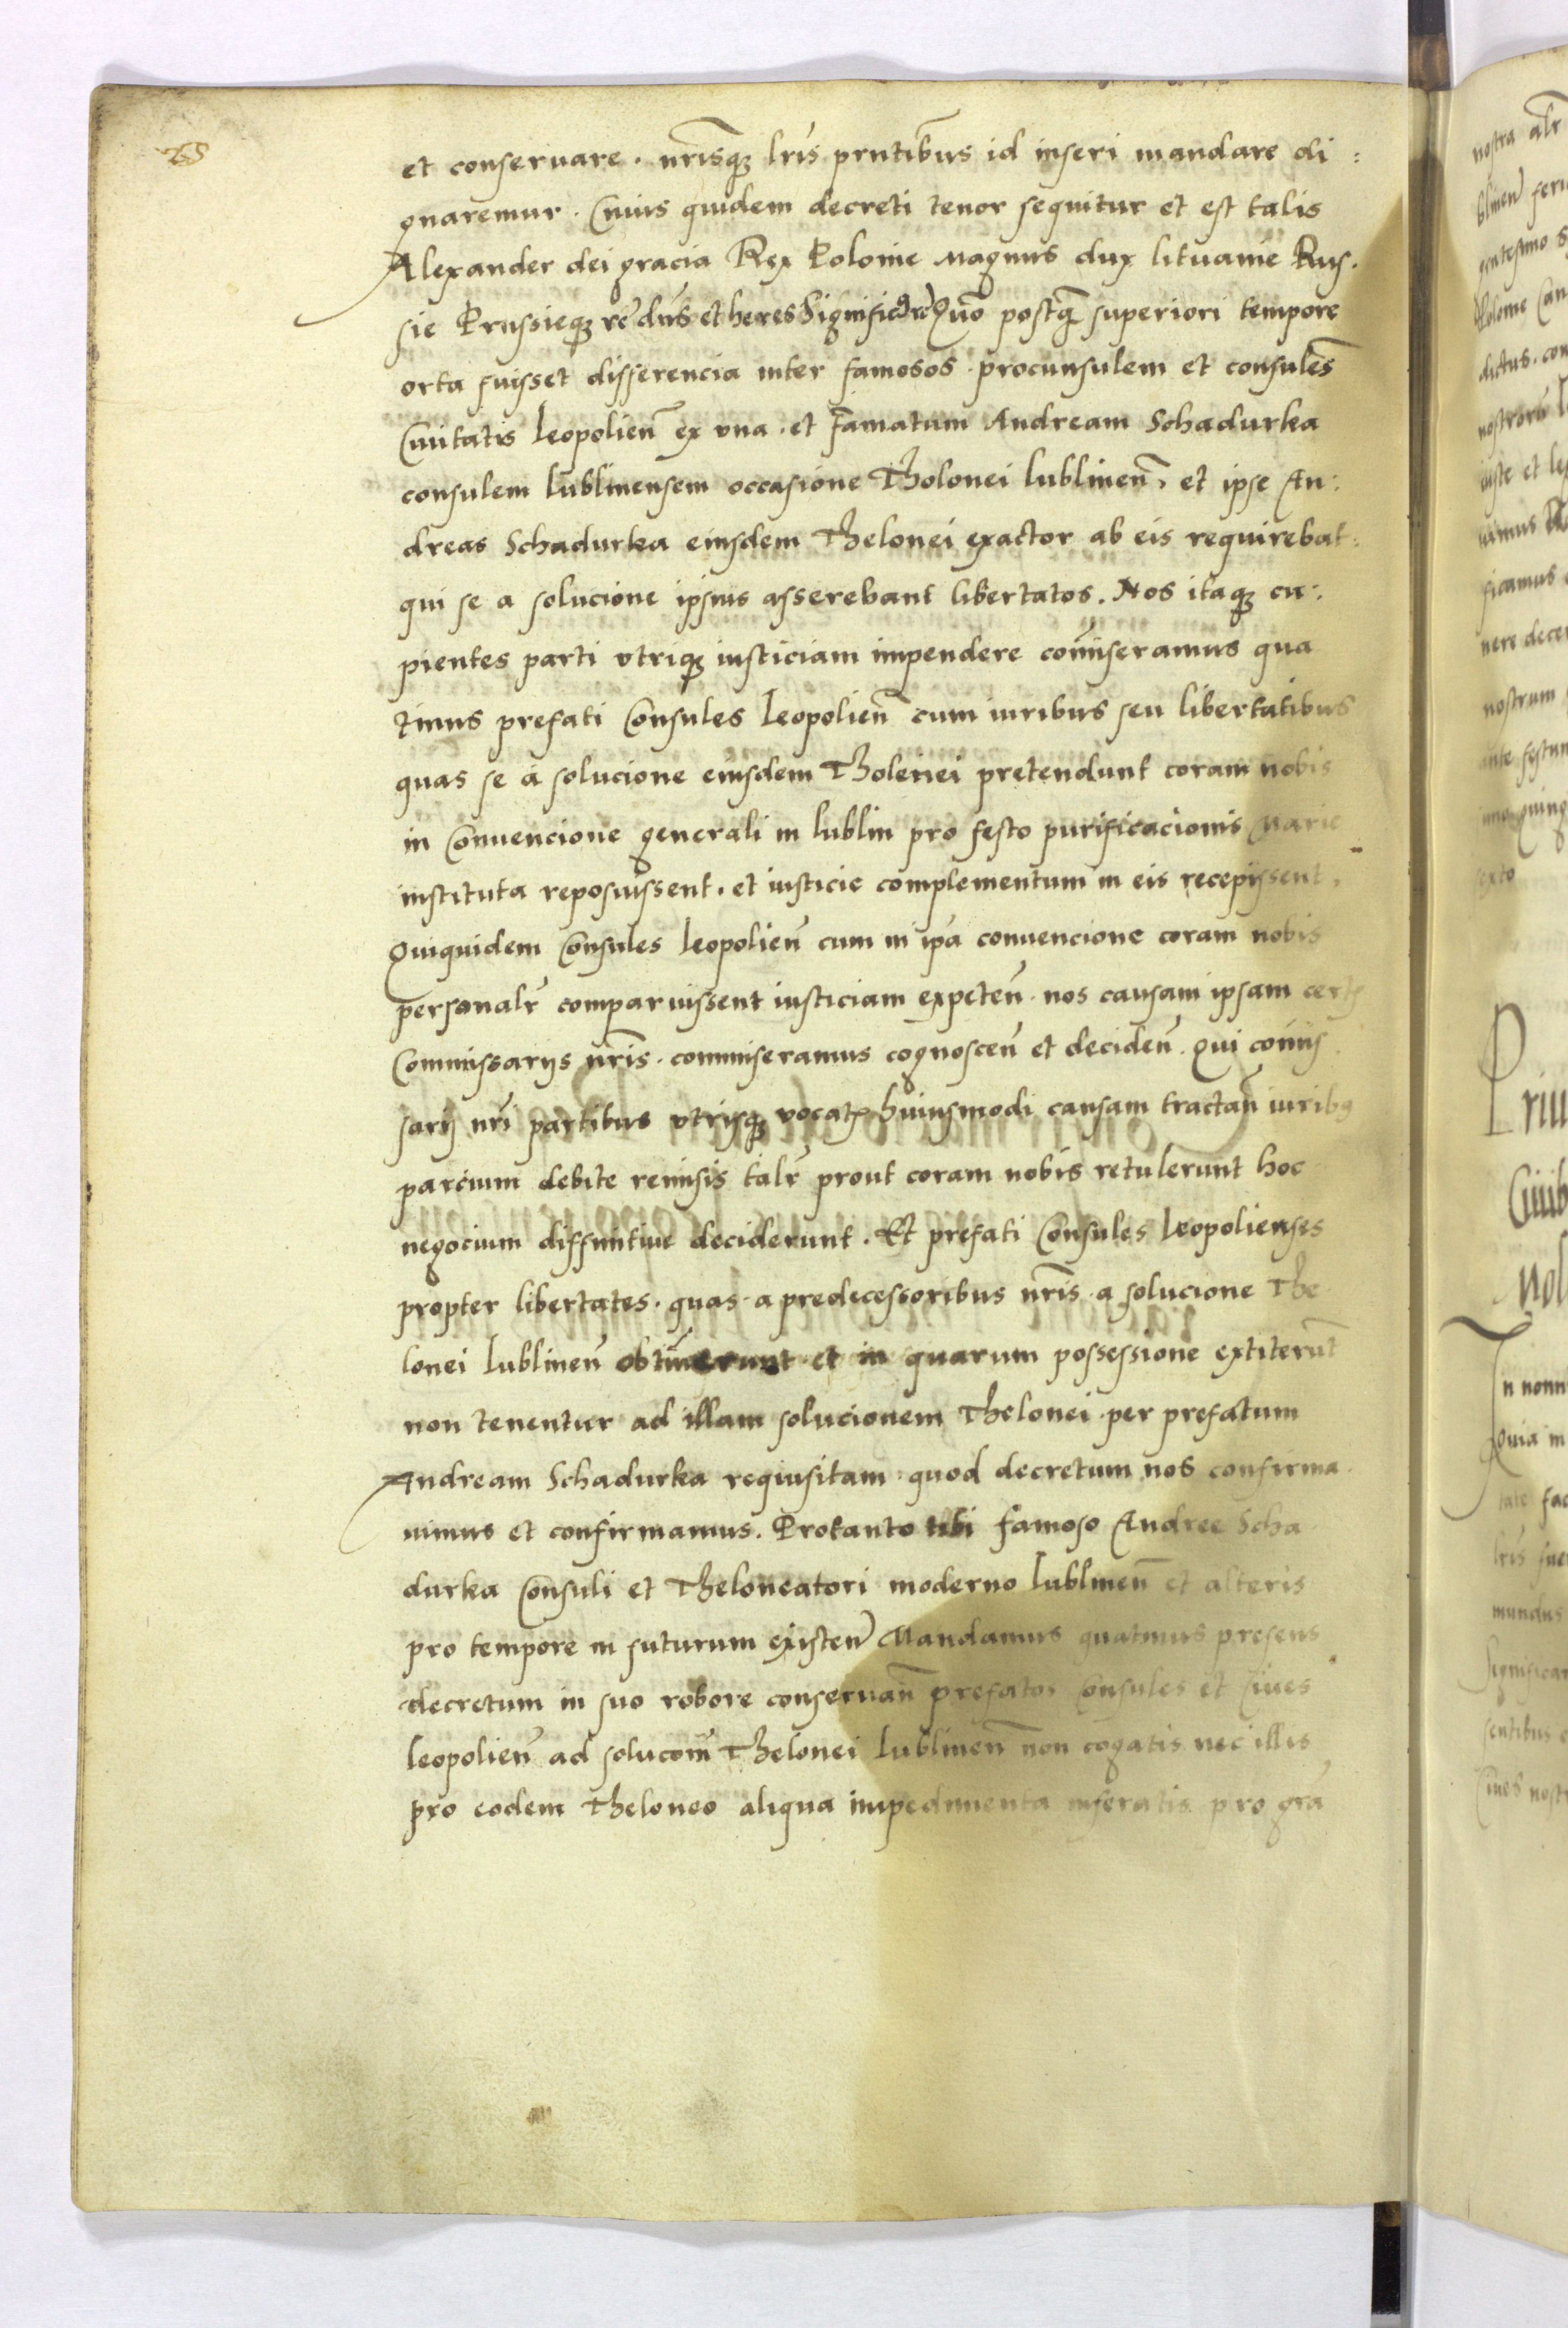 et conseruare . nr̃isq3 lr̃is pr̃ntibus id inseri mandare di :
gnaremur . Cuius quidem decreti tenor sequitur et est talis
Alexander dei gracia Rex Polonie Magnus dux lituanie Rus .
sie Prussieq3 rc̃ dũs et heres Significãꝰ rc̃ Quõ postq̃ superiori tempore
orta fuisset differencia inter famosos . procunsulem et consules
Ciuitatis leopolieñ ex vna . et Famatum Andream Schadurka
consulem lublinensem occasione Tholonei lublineñ , et ipse An :
dreas Schadurka eiusdem Thelonei exactor ab eis requirebat :
qui se a solucione ipsius asserebant libertatos . Nos itaq3 cu :
pientes parti vtriq3 iusticiam impendere com̃iseramus qua
tinus prefati Consules leopolieñ cum iuribus seu libertatibus
quas se a solucione eiusdem Tholenei pretendunt coram nobis
in Conuencione generali in lublin pro festo purificacionis Marie
instituta reposuissent . et iusticie complementum in eis recepissent .
Quiquidem Consules leopolieñ cum in ip̃a conuencione coram nobis
personalr̃ comparuissent iusticiam expeteñ . nos causam ipsam cert
Commissarijs nr̃is . commiseramus cognosceñ et decideñ . Qui com̃is
sarij nr̃i partibus vtrisq3 vocat huiusmodi causam tractañ iuribꝯ
parcium debite reuisis talr̃ prout coram nobis retulerunt hoc
negocium diffinitiue deciderunt . Et prefati Consules leopolienses
propter libertates . quas . a predecessoribus nr̃is . a solucione The
lonei lublineñ obtinuerunt . et in quarum possessione extiterũt
non tenentur ad illam solucionem Thelonei . per prefatum
Andream Schadurka requisitam . quod decretum nos confirma .
uimus et confirmamus . Protanto tibi famoso Andree Scha
durka Consuli et Theloneatori moderno lublineñ et alteris
pro tempore in futurum existeñ Mandamus quatinus presens
decretum in suo robore conseruañ prefatos Consules et Ciues
leopolieñ ad solucoñm Thelonei lublineñ non cogatis nec illis
pro eodem Theloneo aliqua impedimenta inferatis pro gr̃a